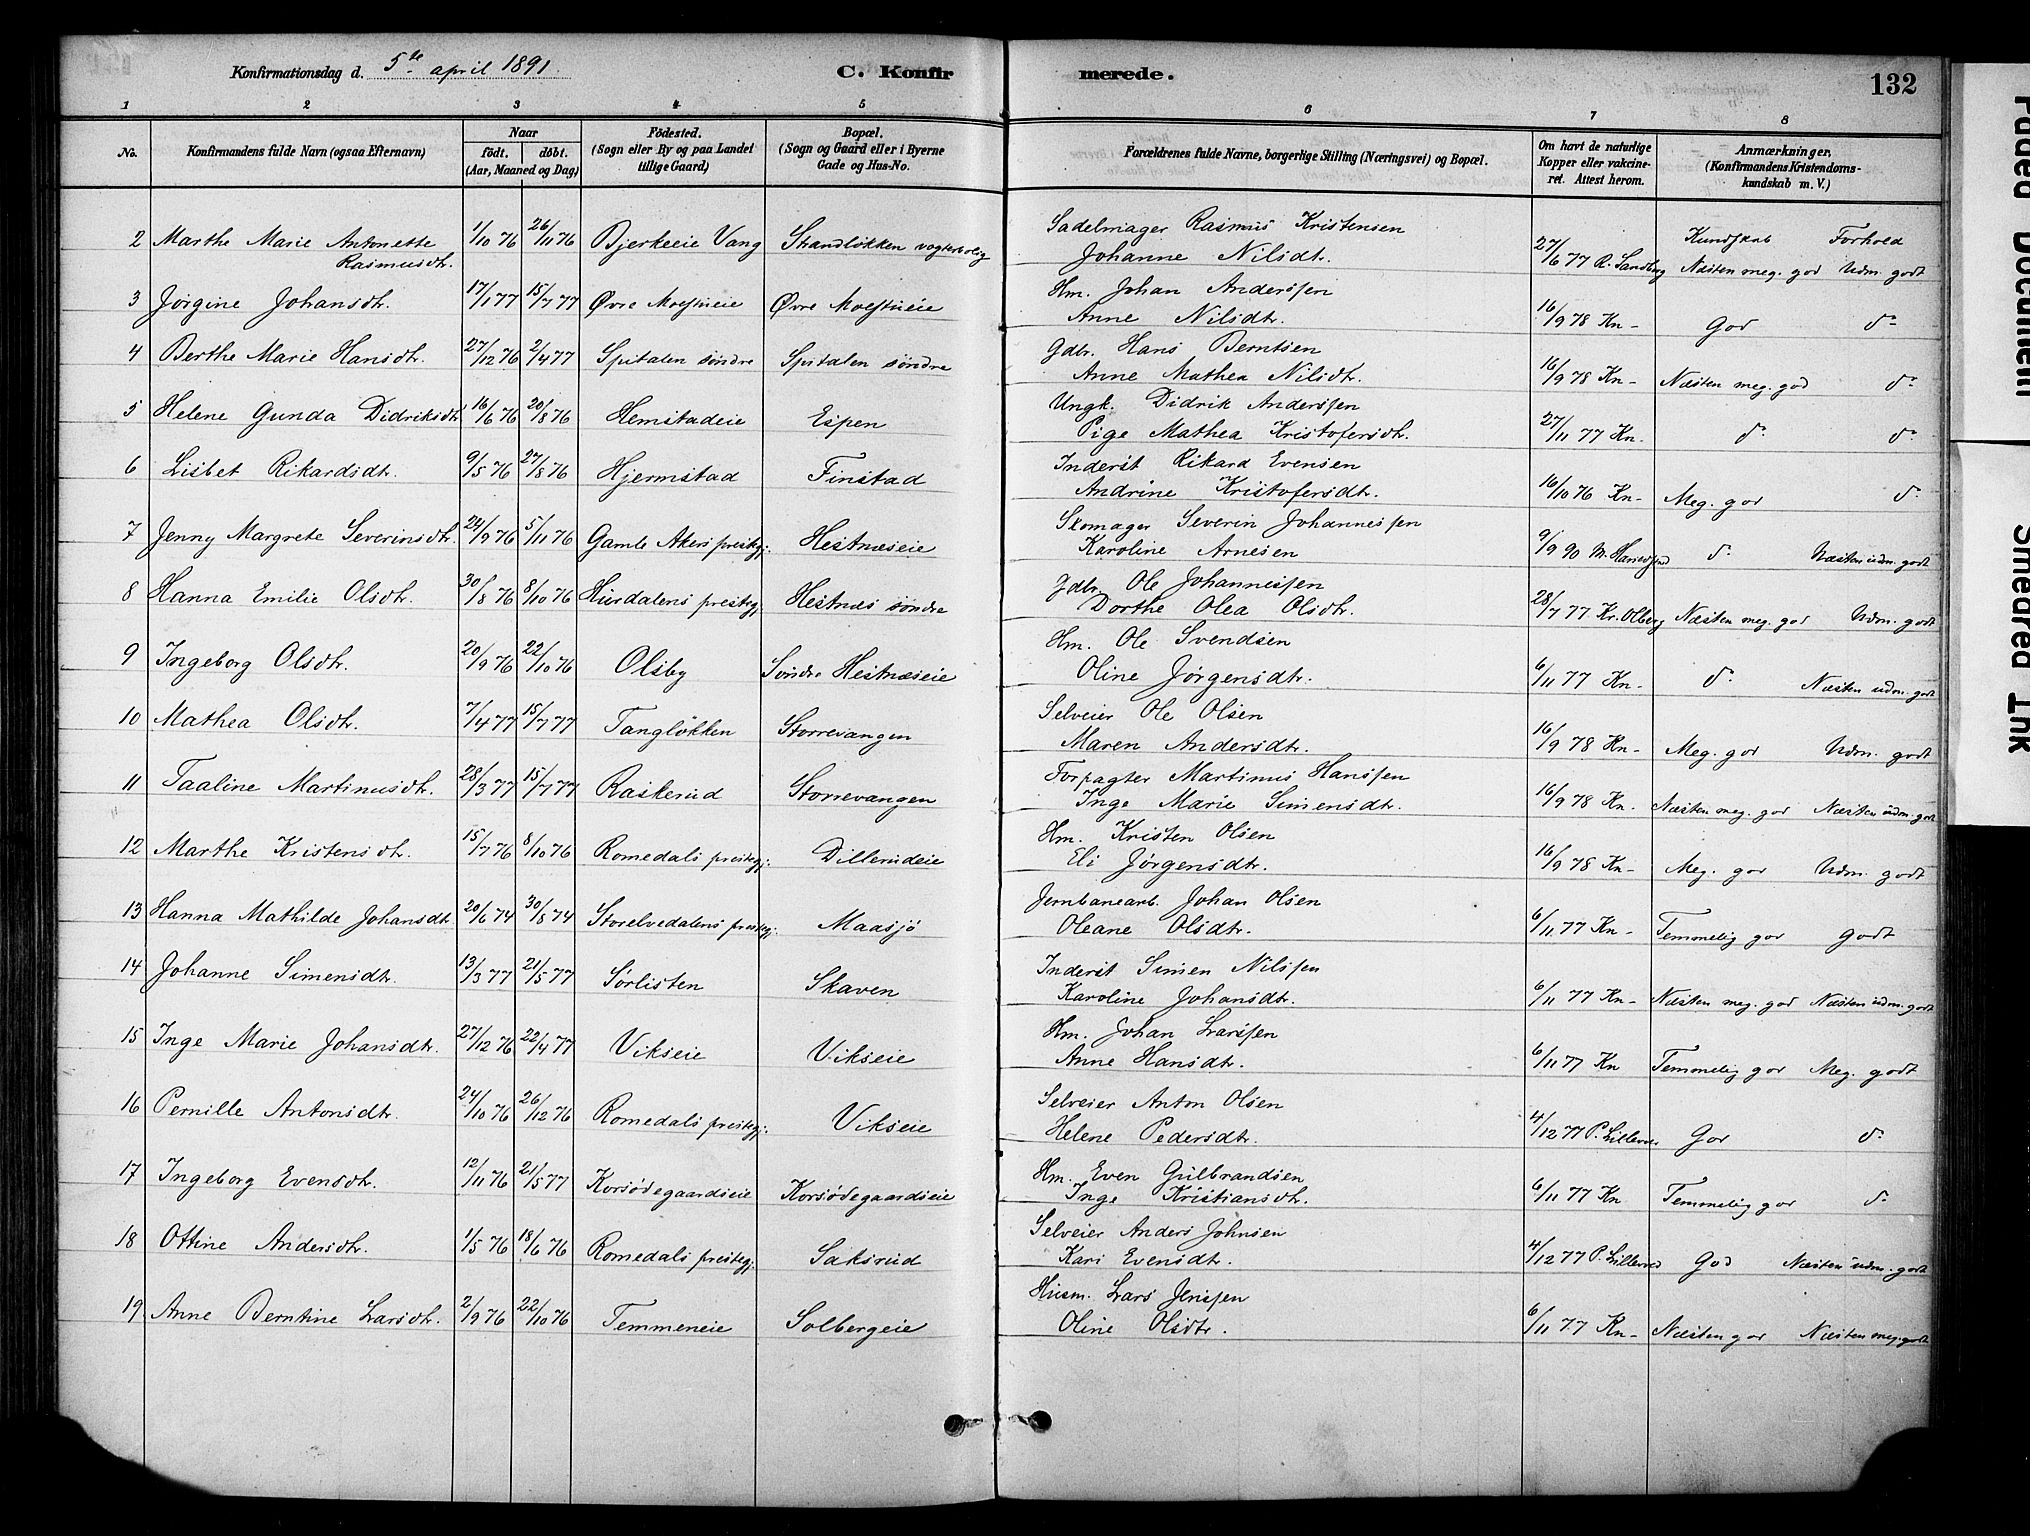 Konfirmationsdag d. 5te april 1891 C. Konfirmerede. 132
1 2 3 4 5 6 7 8
No. Konfirmandens fulde Navn (ogsaa Efternavn) Naar født. døbt. (Aar, Maaned og Dag) Fødested. (Sogn eller By og paa Landet tillige Gaard) Bopæl. (Sogn og Gaard eller i Byerne Gade og Hus-No. Forældrenes fulde Navne, borgerlige Stilling (Næringsvei) og Bopæl. Om havt de naturlige Kopper eller vakcineret. Attest herom. Anmærkninger, (Konfirmandens Kristendomskundskab m. V.)
Kundskab Forhold
2 Marthe Marie Antonette Rasmusdtr. 1/10 76 26/11 76 Bjerkeeie Vang Strandløkken vogterbolig Sadelmager Rasmus Kristensen
Johanne Nilsdtr. 27/6 77 R. Sandberg Næsten meg. god Udm. godt
3 Jørgine Johansdtr. 17/1 77 15/7 77 Øvre Moestueie Øvre Moestueie Hm. Johan Anderssen
Anne Nilsdtr. 16/9 78 Kn- God do
4 Berthe Marie Hansdtr. 27/12 76 2/4 77 Spitalen søndre Spitalen søndre Gdbr. Hans Berntsen
Anne Mathea Nilsdtr. 16/9 78 Kn- Næsten meg. god do
5 Helene Gunda Didriksdtr 16/6 76 20/8 76 Hemstadeie Espen Ungk. Didrik Anderssen
Pige Mathea Kristofersdtr. 27/11 77 Kn. do do
6 Lisbet Rikardsdtr. 9/5 76 27/8 76 Hjermstad Finstad Inderst Rikard Evensen
Andrine Kristofersdtr. 16/10 76 Kn- Meg. god do
7 Jenny Margrete Severinsdtr. 24/9 76 5/11 76 Gamle Akers prestegj. Hestnæseie Skomager Severin Johannessen
Karoline Arnesen 9/9 90 do Næsten udm. godt
8 Hanna Emilie Olsdtr. 30/8 76 8/10 76 Hurdalens prestegj. Hestnæs søndre Gdbr Ole Johannessen
Dorthe Olea Olsdtr. 28/7 77 Kr. Olberg Næsten meg. god Udm. godt
9 Ingeborg Olsdtr. 20/9 76 22/10 76 Olsby Søndre Hestnæseie Hm. Ole Svendsen
Oline Jørgensdtr. 6/11 77 Kn- do Næsten udm. godt
10 Mathea Olsdtr. 7/4 77 15/7 77 Tangløkken Storrevangen Selveier Ole Olsen
Maren Andersdtr. 16/9 78 Kn- Meg. god Udm. godt
11 Taaline Martinusdtr. 28/3 77 15/7 77 Raskerud Storrevangen Forpagter Martinus Hanssen
Inge Marie Simensdtr. 16/9 78 Kn. Næsten meg. god Næsten udm. godt
12 Marthe Kristensdtr. 15/7 76 8/10 76 Romedals prestegj. Dillerudeie Hm. Kristen Olsen
Eli Jørgensdtr. 16/9 78 Kn- Meg. god Udm. godt
13 Hanna Mathilde Johansdtr. 20/6 74 30/8 74 Storelvedalens prestegj. Maasjø Jernbanearb. Johan Olsen
Oleane Olsdtr. 6/11 77 Kn- Temmelig god godt
14 Johanne Simensdtr. 13/3 77 21/5 77 Sørlisten Skaven Inderst Simen Nilssen
Karoline Johansdtr. 6/11 77 Kn- Næsten meg. god Næsten udm. godt
15 Inge Marie Johansdtr. 27/12 76 22/4 77 Vikseie Vikseie Hm. Johan Larssen
Anne Hansdtr. 6/11 77 Kn Temmelig god Meg. godt
16 Pernille Antonsdtr. 24/10 76 26/12 76 Romedals prestegj. Vikseie Selveier Anton Olsen
Helene Pedersdtr. 4/12 77 God do
17 Ingeborg Evensdtr. 12/11 76 21/5 77 Korsødegaardseie Korsødegaardseie Hm. Even Gulbrandsen
Inge Kristiansdtr. 6/11 77 Kn Temmelig god do
18 Ottine Andersdtr. 1/5 76 18/6 76 Romedals prestegj. Saksrud Selveier Anders Johnsen
Kari Evensdtr. 4/12 77 God Næsten udm. godt
19 Anne Berntine Larsdtr. 2/9 76 22/10 76 Temmeneie Solbergeie Husm. Lars Jenssen
Oline Olsdtr. 6/11 77 Kn- Næsten god Næsten meg. godt
Faded Document
Smeared Ink